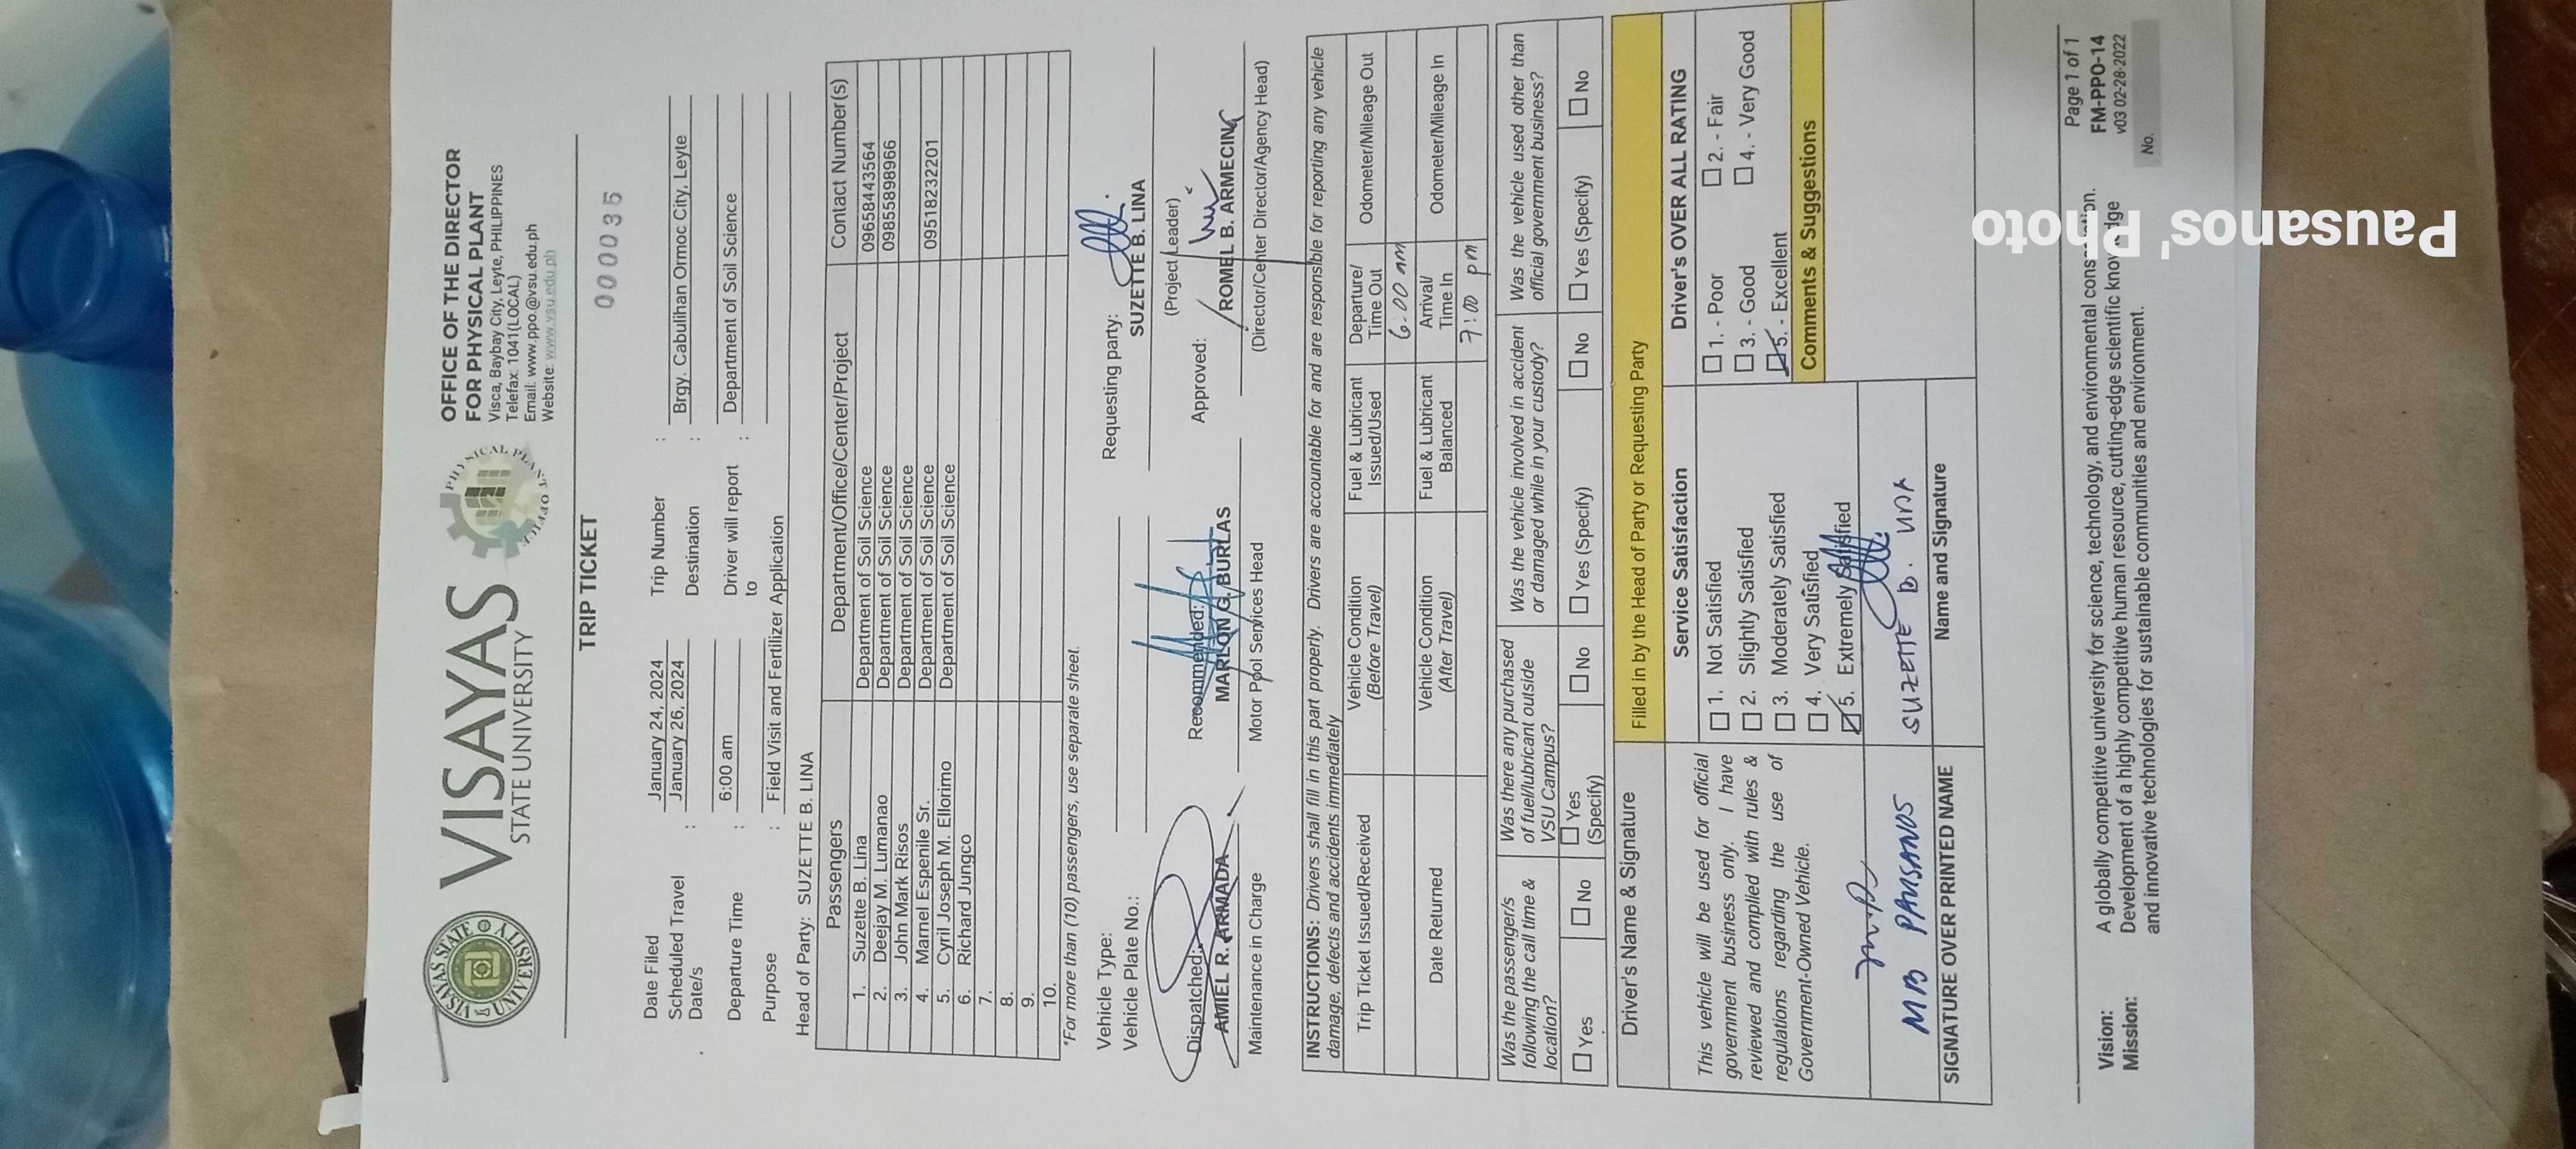 VISAYAS STATE UNIVERSITY
VISAYAS
STATE UNIVERSITY
PHYSICAL PLANT OFFICE
OFFICE OF THE DIRECTOR
FOR PHYSICAL PLANT
Visca, Baybay City, Leyte, PHILIPPINES
Telefax: 1041(LOCAL)
Email: www.ppo.@vsu.edu.ph
Website: www.vsu.edu.ph
TRIP TICKET
000035
Date Filed January 24, 2024 Trip Number :
Scheduled Travel Date/s : January 26, 2024 Destination : Brgy. Cabulihan Ormoc City, Leyte
Departure Time : 6:00 am Driver will report to : Department of Soil Science
Purpose : Field Visit and Fertilizer Application
Head of Party: SUZETTE B. LINA
Passengers Department/Office/Center/Project Contact Number(s)
1. Suzette B. Lina Department of Soil Science 09658443564
2. Deejay M. Lumanao Department of Soil Science 09855898966
3. John Mark Risos Department of Soil Science
4. Marnel Espenile Sr. Department of Soil Science 09518232201
5. Cyril Joseph M. Ellorimo Department of Soil Science
6. Richard Jungco
7.
8.
9.
10.
*For more than (10) passengers, use separate sheet.
Vehicle Type:
Vehicle Plate No.:
Requesting party:
SUZETTE B. LINA
(Project Leader)
Dispatched: Recommended: Approved:
AMIEL R. ARMADA MARLON G. BURLAS ROMEL B. ARMECING
Maintenance in Charge Motor Pool Services Head (Director/Center Director/Agency Head)
INSTRUCTIONS: Drivers shall fill in this part properly. Drivers are accountable for and are responsible for reporting any vehicle
damage, defects and accidents immediately
Trip Ticket Issued/Received Vehicle Condition (Before Travel) Fuel & Lubricant Issued/Used Departure/ Time Out Odometer/Mileage Out
6:00 am
Date Returned Vehicle Condition (After Travel) Fuel & Lubricant Balanced Arrival/ Time In Odometer/Mileage In
7:00 pm
Was the passenger/s following the call time & location?
Was there any purchased of fuel/lubricant outside VSU Campus?
Was the vehicle involved in accident or damaged while in your custody?
Was the vehicle used other than official government business?
Yes No Yes (Specify) No Yes (Specify) No Yes (Specify) No
Driver's Name & Signature Filled in by the Head of Party or Requesting Party
This vehicle will be used for official
government business only. I have
reviewed and complied with rules &
regulations regarding the use of
Government-Owned Vehicle.
MB PAUSANOS
SIGNATURE OVER PRINTED NAME
Service Satisfaction
1. Not Satisfied
2. Slightly Satisfied
3. Moderately Satisfied
4. Very Satisfied
5. Extremely Satisfied
SUZETTE B. LINA
Name and Signature
Driver's OVER ALL RATING
1. - Poor 2. - Fair
3. - Good 4. - Very Good
5. - Excellent
Comments & Suggestions
Vision: A globally competitive university for science, technology, and environmental conservation.
Mission: Development of a highly competitive human resource, cutting-edge scientific knowledge
and innovative technologies for sustainable communities and environment.
Page 1 of 1
FM-PPO-14
v03 02-28-2022
No.
Pausanos' Photo